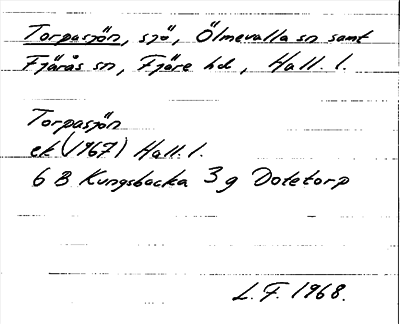 Torpasjön, sjö, Ölmevalla sn samt
Fjärås sn, Fjäre hd, Hall. l.
Torpasjön
ek (1967) Hall. l.
6 B Kungsbacka 3 g Dotetorp
L. F. 1968.